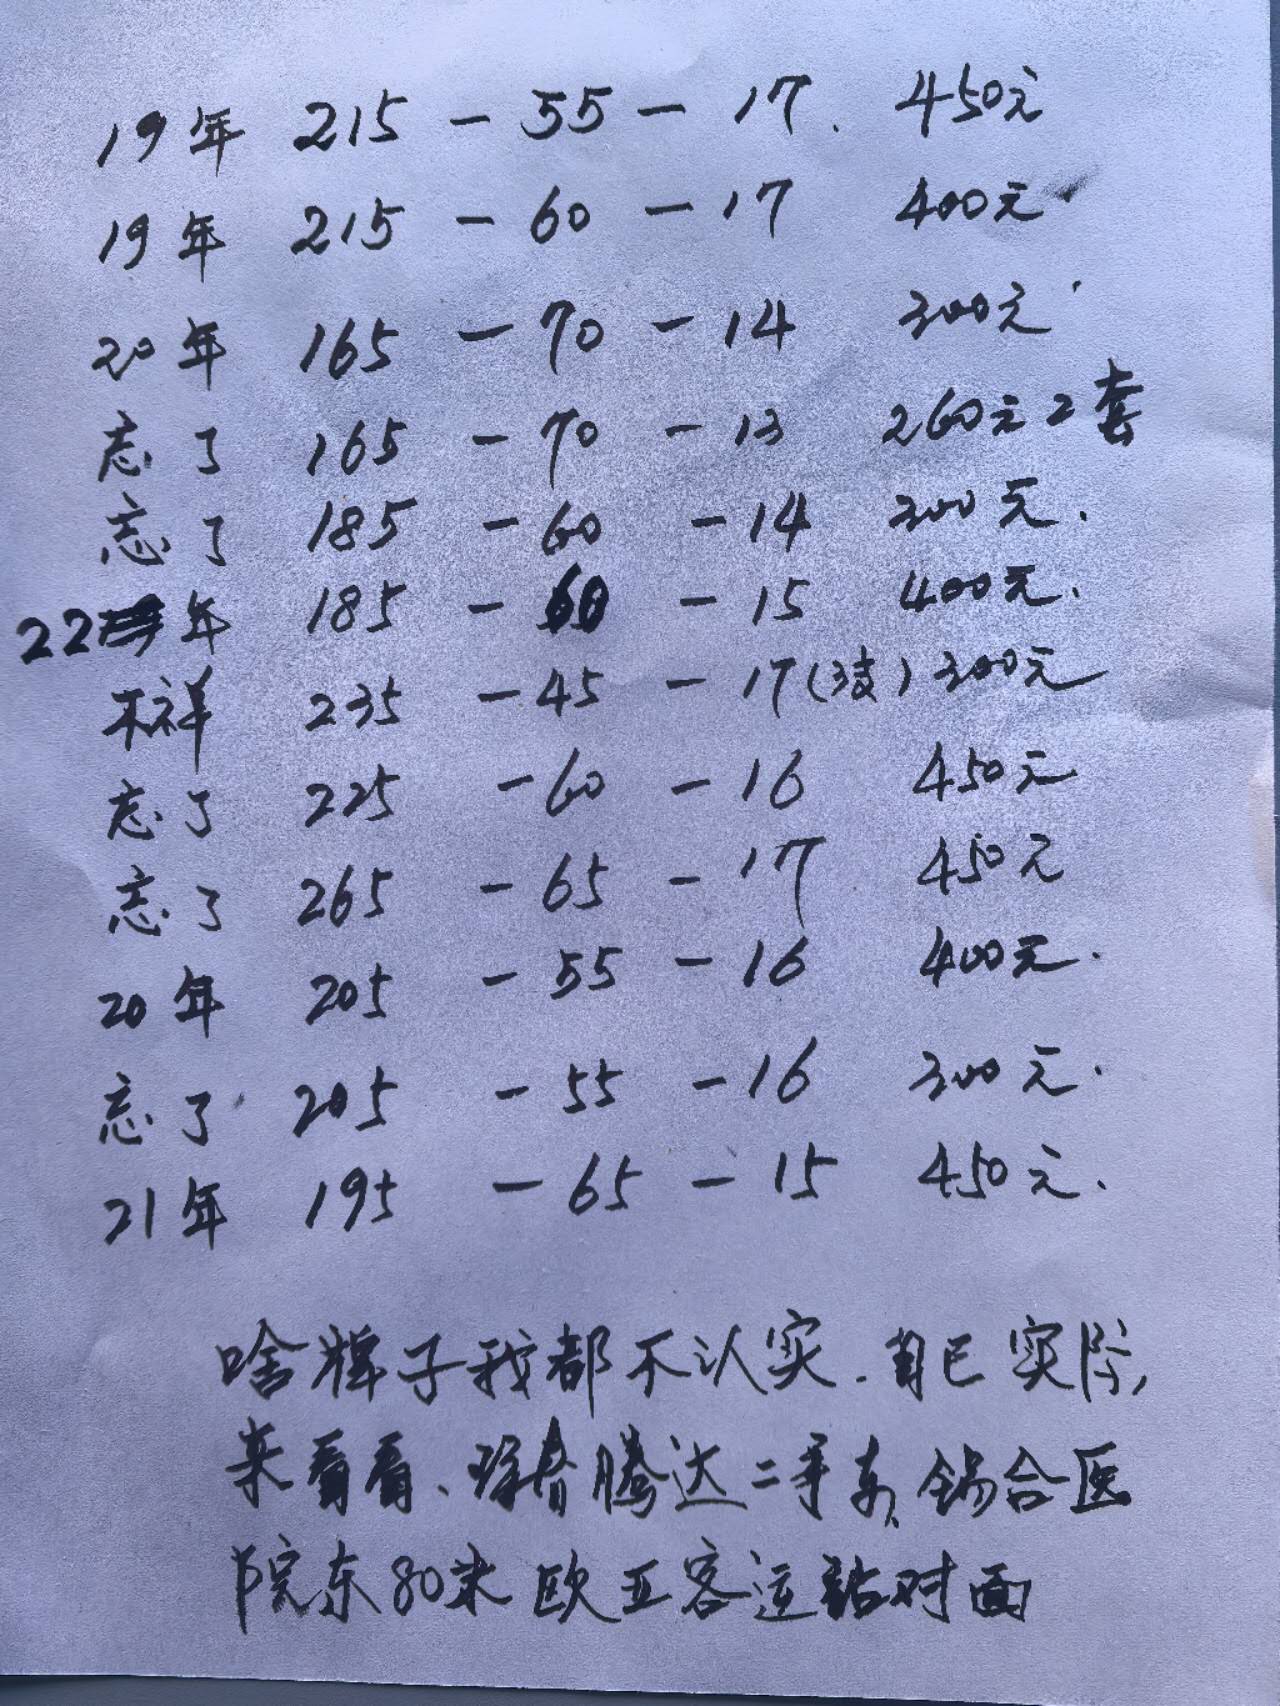 19年 215 - 55 - 17. 450元
19年 215 - 60 - 17 400元
20年 165 - 70 - 14 300元
忘了 165 - 70 - 13 260元2套
忘了 185 - 60 - 14 300元.
22年 185 - 60 - 15 400元.
不祥 235 - 45 - 17(3支) 300元
忘了 225 - 60 - 16 450元
忘了 265 - 65 - 17 450元
20年 205 - 55 - 16 400元.
忘了 205 - 55 - 16 300元.
21年 195 - 65 - 15 450元.
啥牌子我都不认实.自己实际,
来看看、珲春腾达二手车,锅合医
院东80米欧亚客运站对面